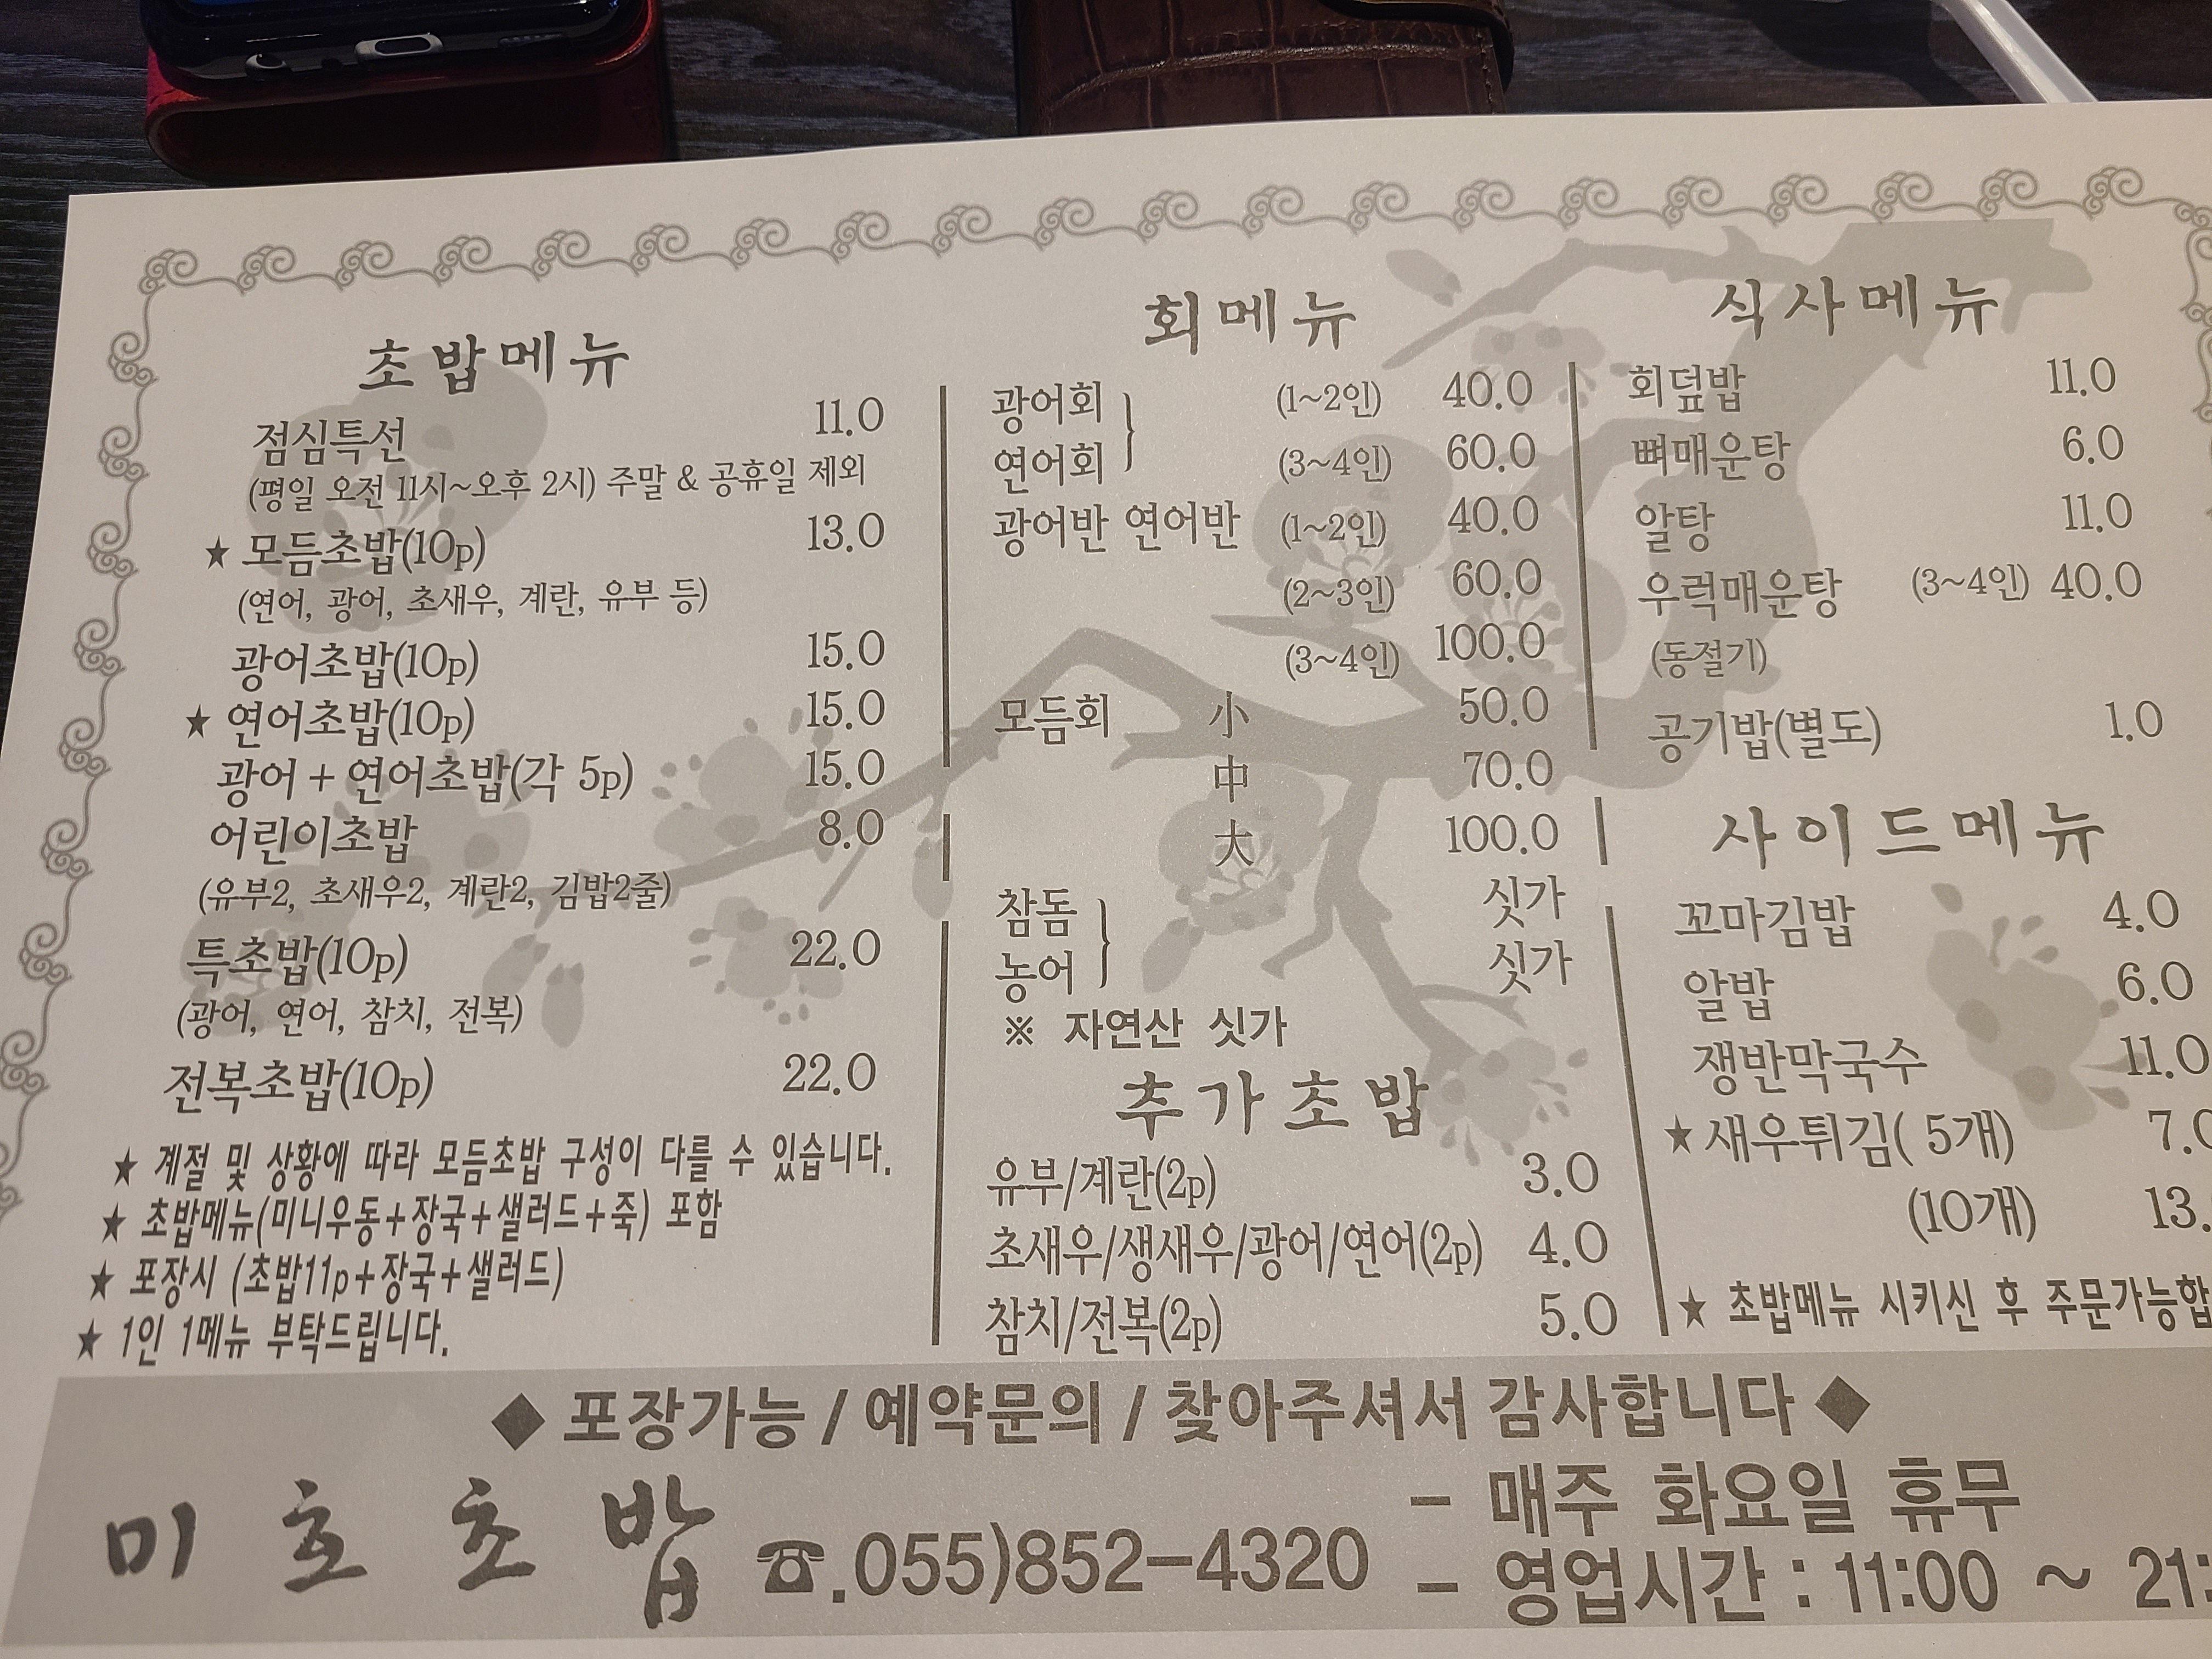 초밥메뉴
점심특선 11.0
(평일 오전 11시~오후 2시) 주말 & 공휴일 제외
★ 모듬초밥(10p) 13.0
(연어, 광어, 초새우, 계란, 유부 등)
광어초밥(10p) 15.0
★ 연어초밥(10p) 15.0
광어 + 연어초밥(각 5p) 15.0
어린이초밥 8.0
(유부2, 초새우2, 계란2, 김밥2줄)
특초밥(10p) 22.0
(광어, 연어, 참치, 전복)
전복초밥(10p) 22.0
★ 계절 및 상황에 따라 모듬초밥 구성이 다를 수 있습니다.
★ 초밥메뉴(미니우동+장국+샐러드+죽) 포함
★ 포장시 (초밥11p+장국+샐러드)
★ 1인 1메뉴 부탁드립니다.
회메뉴
광어회 } (1~2인) 40.0
연어회 (3~4인) 60.0
광어반 연어반 (1~2인) 40.0
(2~3인) 60.0
(3~4인) 100.0
모듬회 小 50.0
中 70.0
大 100.0
참돔 } 싯가
농어 싯가
※ 자연산 싯가
추가초밥
유부/계란(2p) 3.0
초새우/생새우/광어/연어(2p) 4.0
참치/전복(2p) 5.0
식사메뉴
회덮밥 11.0
뼈매운탕 6.0
알탕 11.0
우럭매운탕 (3~4인) 40.0
(동절기)
공기밥(별도) 1.0
사이드메뉴
꼬마김밥 4.0
알밥 6.0
쟁반막국수 11.0
★ 새우튀김( 5개) 7.0
(10개) 13.
★ 초밥메뉴 시키신 후 주문가능합
◆ 포장가능 / 예약문의 / 찾아주셔서 감사합니다 ◆
미호초밥 ☎.055)852-4320
- 매주 화요일 휴무
- 영업시간 : 11:00 ~ 21: